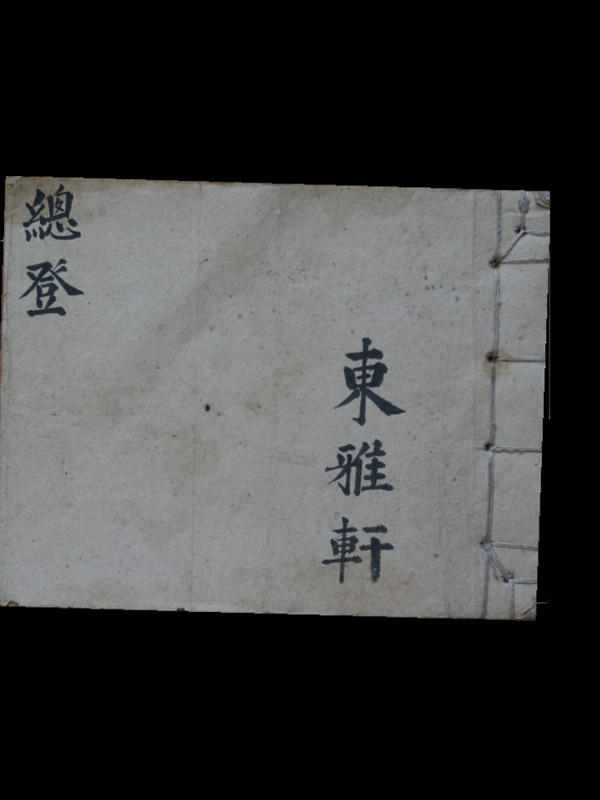 東雅軒
總登